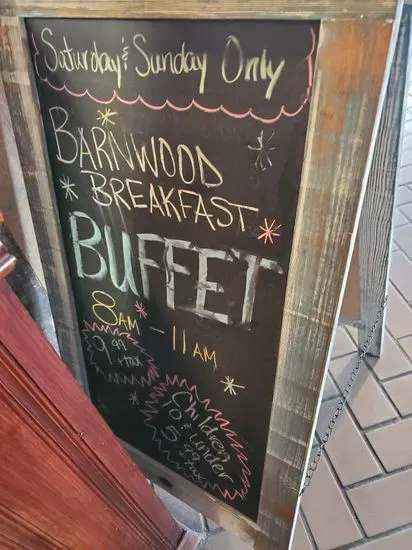 Saturday & Sunday Only
BARNWOOD
BREAKFAST
BUFFET
8AM - 11AM
9.99
+ tax
Children
& under
5.99
+ tax